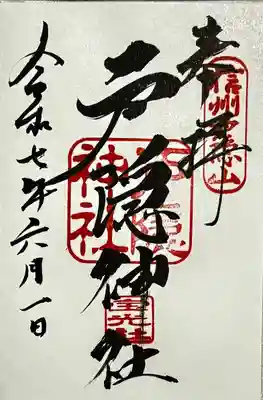 奉拝
信州戸隠山
戸隠神社
戸隠神社
宝光社
令和七年六月一日